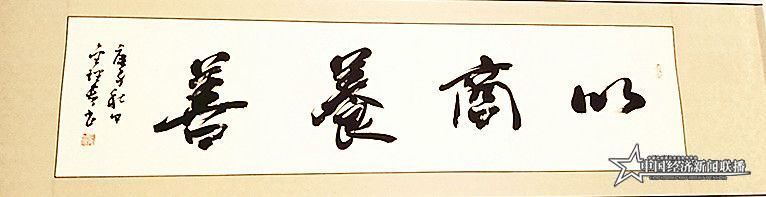 以商養善
庚子秋日
中国经济新闻联播